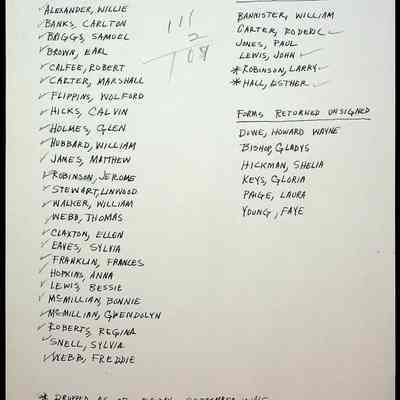 ✓ALEXANDER, WILLIE
✓BANKS, CARLTON
✓BRIGGS, SAMUEL
✓BROWN, EARL
✓CALFEE, ROBERT
✓CARTER, MARSHALL
✓FLIPPINS, WOLFORD
✓HICKS, CALVIN
✓HOLMES, GLEN
✓HUBBARD, WILLIAM
✓JAMES, MATTHEW
✓ROBINSON, JEROME
✓STEWART, LINWOOD
✓WALKER, WILLIAM
✓WEBB, THOMAS
✓CLAXTON, ELLEN
✓EAVES, SYLVIA
✓FRANKLIN, FRANCES
HOPKINS, ANNA
✓LEWIS, BESSIE
✓MCMILLIAN, BONNIE
✓MCMILLIAN, GWENDOLYN
✓ROBERTS, REGINA
✓SNELL, SYLVIA
✓WEBB, FREDDIE
BANNISTER, WILLIAM
CARTER, RODERIC ✓
JONES, PAUL
LEWIS, JOHN ✓
*ROBINSON, LARRY ✓
*HALL, ESTHER ✓
FORMS RETURNED UNSIGNED
DOWE, HOWARD WAYNE
BISHOP, GLADYS
HICKMAN, SHELIA
KEYS, GLORIA
PAIGE, LAURA
YOUNG, FAYE
* DROPPED AS OF FRIDAY, SEPTEMBER